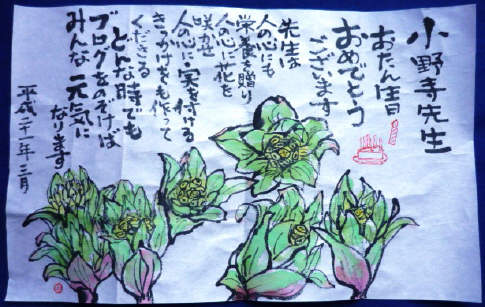 小野寺先生
おたん生日
おめでとう
ございます
先生は
人の心にも
栄養を贈り
人の心に花を
咲かせ
人の心に実を付ける
きっかけをも作って
くださる
どんな時でも
ブログをのぞけば
みんな元気に
なります
平成二十一年三月